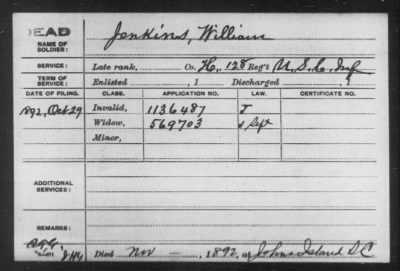 DEAD Jenkins, William
NAME OF SOLDIER:
SERVICE: Late rank, Co. H, 128 Reg't U.S.C. Inf
TERM OF SERVICE: Enlisted , 1 Discharged , 1
DATE OF FILING. CLASS. APPLICATION NO. LAW. CERTIFICATE NO.
1892, Oct 29 Invalid, 1136487 J
Widow, 569703
Minor,
ADDITIONAL SERVICES:
REMARKS:
Died Nov — , 1892, at Johns Island S.C